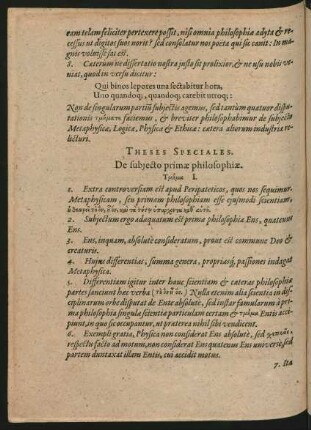 eam telam feliciter pertexere possit, nisi omnia philosophiæ adyta & re-
cessus ut digitos suos norit? sed consolatur nos poeta qui sic canit: In ma-
gnis voluisse sat est.
8. Caterum ne dissertatio nostra justo sit prolixior, & ne usu nobis ve-
niat, quod in versu dicitur:
Qui binos lepores una sectabitur hora,
Uno quandoq;, quandoq; carebit utroq;:
Non de singularum partiũ subjectis agemus, sed tantum quatuor dispu-
tationis τμήματα faciemus, & breviter philosophabimur de subjecto
Metaphysicæ, Logicæ, Physicæ & Ethicæ: cætera aliorum industriæ re-
licturi.
THESES SPECIALES.
De subjecto primæ philosophiæ.
Τμῆμα I.
1. Extra controversiam est apud Peripateticos, quos nos sequimur.
Metaphysicam, seu primam philosophiam esse ejusmodi scientiam,
2. Subjectum ergo adæquatum est prima philosophia Ens, quatenus
Ens.
3. Ens, inquam, absolutè consideratum, prout est commune Deo &
creaturis.
4. Hujus differentias, summa genera, propriasq; passiones indagat
Metaphysica.
5. Differentiam igitur inter hanc scientiam & cæteras philosophiæ
partes sanciunt hæc verba Nulla etenim alia scientia in di-
sciplinarum orbe disputat de Ente absolutè, sed instar famularum à pri-
ma philosophia singula scientia particulam certam & τμῆμα Entis acci-
piunt, in quo sic occupantur, ut præterea nihil sibi vendicent.
6. Exempli gratia, Physica non considerat Ens absolutè, sed
respectu facto ad motum, non considerat Ens quatenus Ens universè, sed
partem duntaxat illam Entis, cui accidit motus.
7. Ita